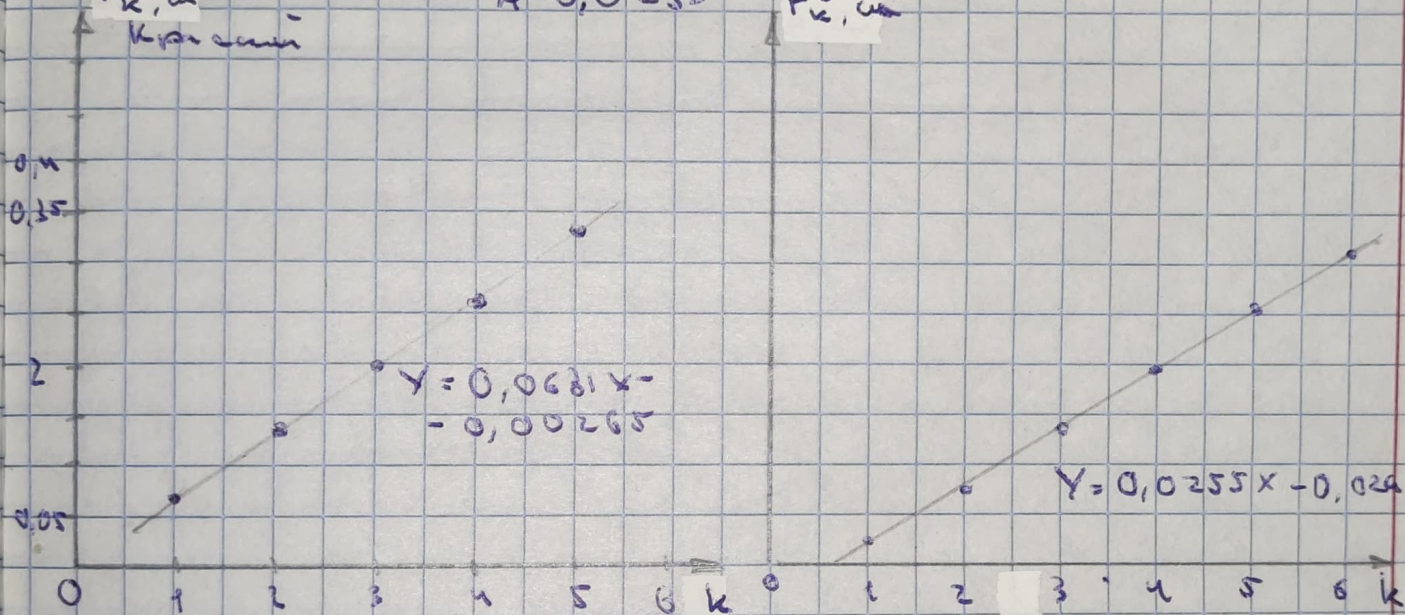 Красный
0,4
0,35
2
Y = 0,0631x-
- 0,00265
0,05
0 1 2 3 4 5 6 k
Y = 0,0255x -0,02
0 1 2 3 4 5 6 k